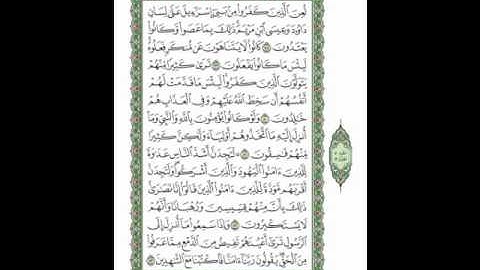 لُعِنَ الَّذِينَ كَفَرُوا مِنْ بَنِي إِسْرَٰٓءِيلَ عَلَىٰ لِسَانِ
دَاوُۥدَ وَعِيسَى ابْنِ مَرْيَمَ ذَٰلِكَ بِمَا عَصَوا وَّكَانُوا
يَعْتَدُونَ ۝ كَانُوا لَا يَتَنَاهَوْنَ عَن مُّنكَرٍ فَعَلُوهُ
لَبِئْسَ مَا كَانُوا يَفْعَلُونَ ۝ تَرَىٰ كَثِيرًا مِّنْهُمْ
يَتَوَلَّوْنَ الَّذِينَ كَفَرُوا لَبِئْسَ مَا قَدَّمَتْ لَهُمْ
أَنفُسُهُمْ أَن سَخِطَ اللَّهُ عَلَيْهِمْ وَفِي الْعَذَابِ هُمْ
خَٰلِدُونَ ۝ وَلَوْ كَانُوا يُؤْمِنُونَ بِاللَّهِ وَالنَّبِيِّ وَمَا
أُنزِلَ إِلَيْهِ مَا اتَّخَذُوهُمْ أَوْلِيَاءَ وَلَٰكِنَّ كَثِيرًا
مِّنْهُمْ فَٰسِقُونَ ۝ لَتَجِدَنَّ أَشَدَّ النَّاسِ عَدَٰوَةً
لِّلَّذِينَ ءَامَنُوا الْيَهُودَ وَالَّذِينَ أَشْرَكُوا وَلَتَجِدَنَّ
أَقْرَبَهُم مَّوَدَّةً لِّلَّذِينَ ءَامَنُوا الَّذِينَ قَالُوا إِنَّا نَصَٰرَىٰ
ذَٰلِكَ بِأَنَّ مِنْهُمْ قِسِّيسِينَ وَرُهْبَانًا وَأَنَّهُمْ
لَا يَسْتَكْبِرُونَ ۝ وَإِذَا سَمِعُوا مَا أُنزِلَ إِلَى
الرَّسُولِ تَرَىٰ أَعْيُنَهُمْ تَفِيضُ مِنَ الدَّمْعِ مِمَّا عَرَفُوا
مِنَ الْحَقِّ يَقُولُونَ رَبَّنَا ءَامَنَّا فَاكْتُبْنَا مَعَ الشَّٰهِدِينَ ۝